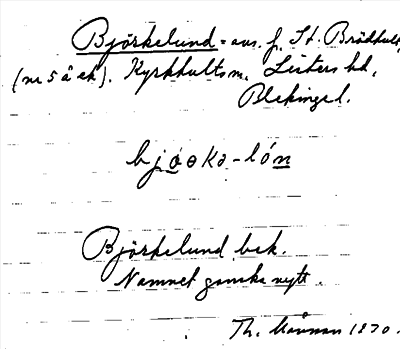 Björkelund = avs. f. St. Brödhult,
(nr 5 å ek). Kyrkhults sn. Listers hd,
Blekinge l.
Björkelund bek.
Namnet ganska nytt.
Th. 1870.